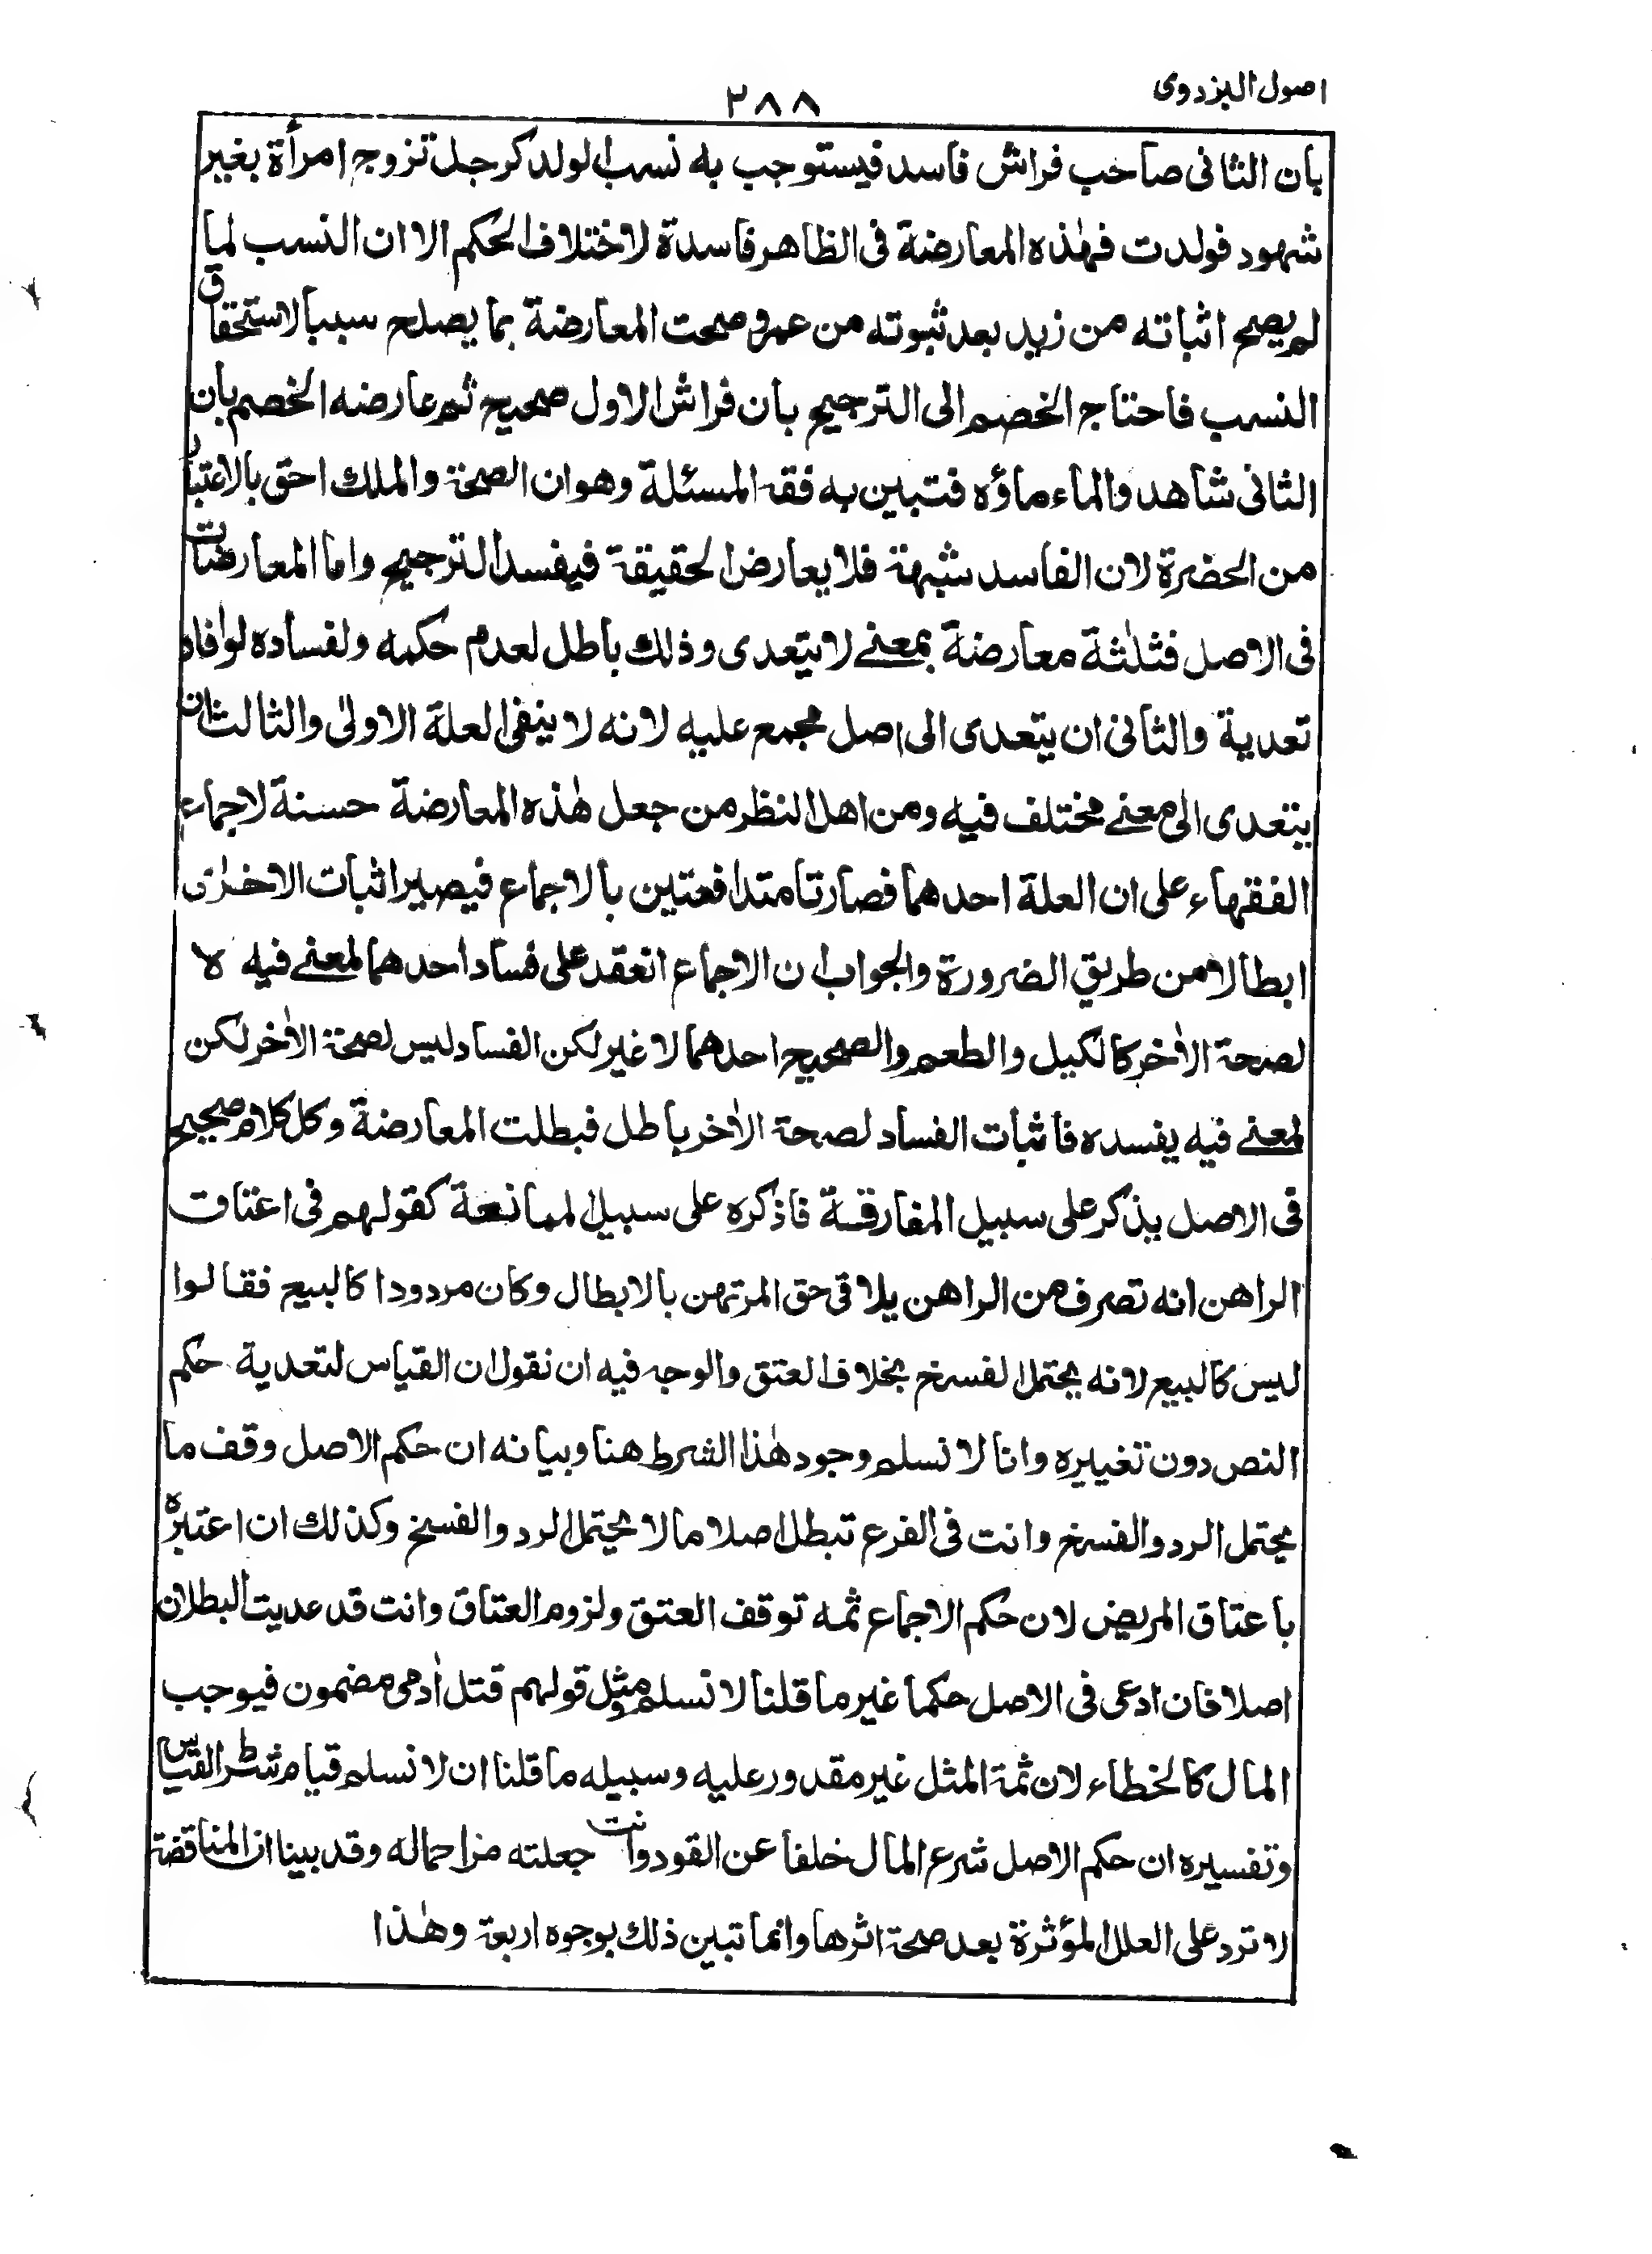 اصول البزدوی
٢٨٨
بان الثانی صاحب فراش فاسد فیستوجب به نسب الولد کرجل تزوج امرأة بغیر
شهود فولدت فهٰذه المعارضة فی الظاهر فاسدة لاختلاف الحکم الا ان النسب لما
لم یصح اثباته من زید بعد ثبوته من عمرو صحت المعارضة بما یصلح سببا لاستحقاق
النسب فاحتاج الخصم الی الترجیح بان فراش الاول صحیح ثم عارضه الخصم بان
الثانی شاهد والماء ماؤه فتبین به فقه المسئلة وهو ان الصحة والملك احق بالاعتبار
من الحضرة لان الفاسد شبهة فلا یعارض الحقیقة فیفسد الترجیح واما المعارضات
فی الاصل فثلٰثة معارضة بمعنے لا یتعدی وذلك باطل لعدم حکمه ولفساده لو افاد
تعدیة والثانی ان یتعدی الی اصل مجمع علیه لانه لا ینفی العلة الاولیٰ والثالث ان
یتعدی الی معنے مختلف فیه ومن اهل النظر من جعل هٰذه المعارضة حسنة لاجماع
الفقهاء علی ان العلة احدهما فصارتا متدافعتین بالاجماع فیصیر اثبات الاخرٰی
ابطالا من طریق الضرورة والجواب ان الاجماع انعقد علی فساد احدهما لمعنے فیه لا
لصحة الاٰخر کالکیل والطعم والصحیح احدهما لا غیر لکن الفساد لیس لصحة الاٰخر لکن
لمعنے فیه یفسده فاثبات الفساد لصحة الاٰخر باطل فبطلت المعارضة وکل کلام صحیح
فی الاصل یذکر علی سبیل المفارقة فاذکره علی سبیل الممانعة کقولهم فی اعتاق
الراهن انه تصرف من الراهن یلاقی حق المرتهن بالابطال وکان مردودا کالبیع فقالوا
لیس کالبیع لانه یحتمل الفسخ بخلاف العتق والوجه فیه ان نقول ان القیاس لتعدیة حکم
النص دون تغییره وانا لا نسلم وجود هٰذا الشرط هنا وبیانه ان حکم الاصل وقف ما
یحتمل الرد والفسخ وانت فی الفرع تبطل اصلا ما لا یحتمل الرد والفسخ وکذلك ان اعتبره
باعتاق المریض لان حکم الاجماع ثمه توقف العتق ولزوم العتاق وانت قد عدیت البطلان
اصلا فان ادعی فی الاصل حکما غیر ما قلنا لا نسلم ومثل قولهم قتل اٰدمی مضمون فیوجب
المال کالخطاء لان ثمة المثل غیر مقدور علیه وسبیله ما قلنا ان لا نسلم قیام شرط القیاس
وتفسیره ان حکم الاصل شرع المال خلفا عن القود وانت جعلته مزاحماله وقد بینا ان المناقضة
لا ترد علی العلل المؤثرة بعد صحة اثرها وانما تبین ذلك بوجوه اربعة وهٰذا